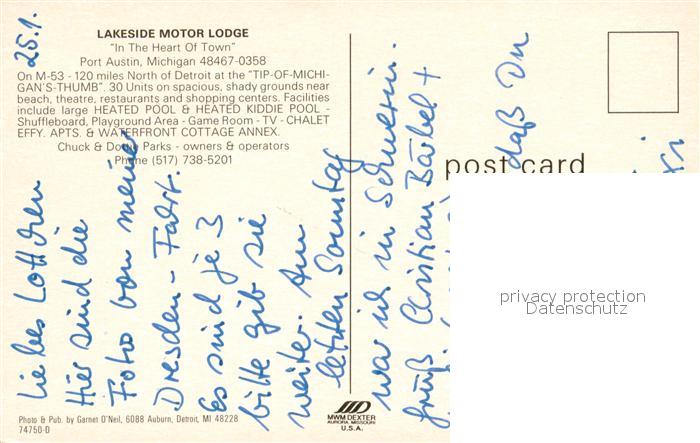 LAKESIDE MOTOR LODGE
"In The Heart Of Town"
Port Austin, Michigan 48467-0358
On M-53 - 120 miles North of Detroit at the "TIP-OF-MICHI-
GAN'S-THUMB". 30 Units on spacious, shady grounds near
beach, theatre, restaurants and shopping centers. Facilities
include large HEATED POOL & HEATED KIDDIE POOL -
Shuffleboard, Playground Area - Game Room - TV - CHALET
EFFY. APTS. & WATERFRONT COTTAGE ANNEX.
Chuck & Dottie Parks - owners & operators
Phone (517) 738-5201
post card
25.1.
Liebes Lottchen
Hier sind die
Foto von meiner
Dresden-Fahrt.
Es sind je 3
bitte gib sie
weiter. Am
letzten Sonntag
war ich in Schwerin.
Christian Bärbel +
daß Du
privacy protection
Datenschutz
Photo & Pub. by Garnet O'Neil, 6088 Auburn, Detroit, MI 48228
74750-D
MWM DEXTER
AURORA, MISSOURI
U.S.A.